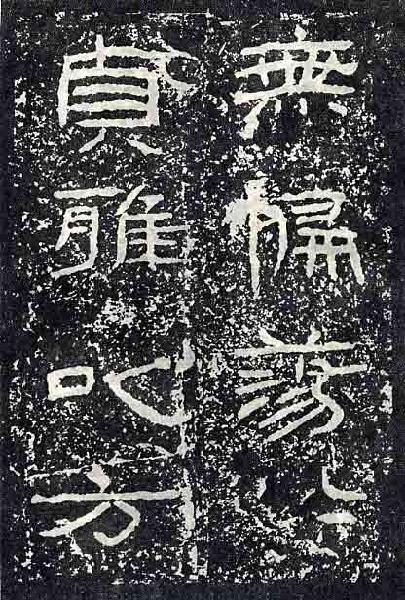 無偏蕩
貞雅以方